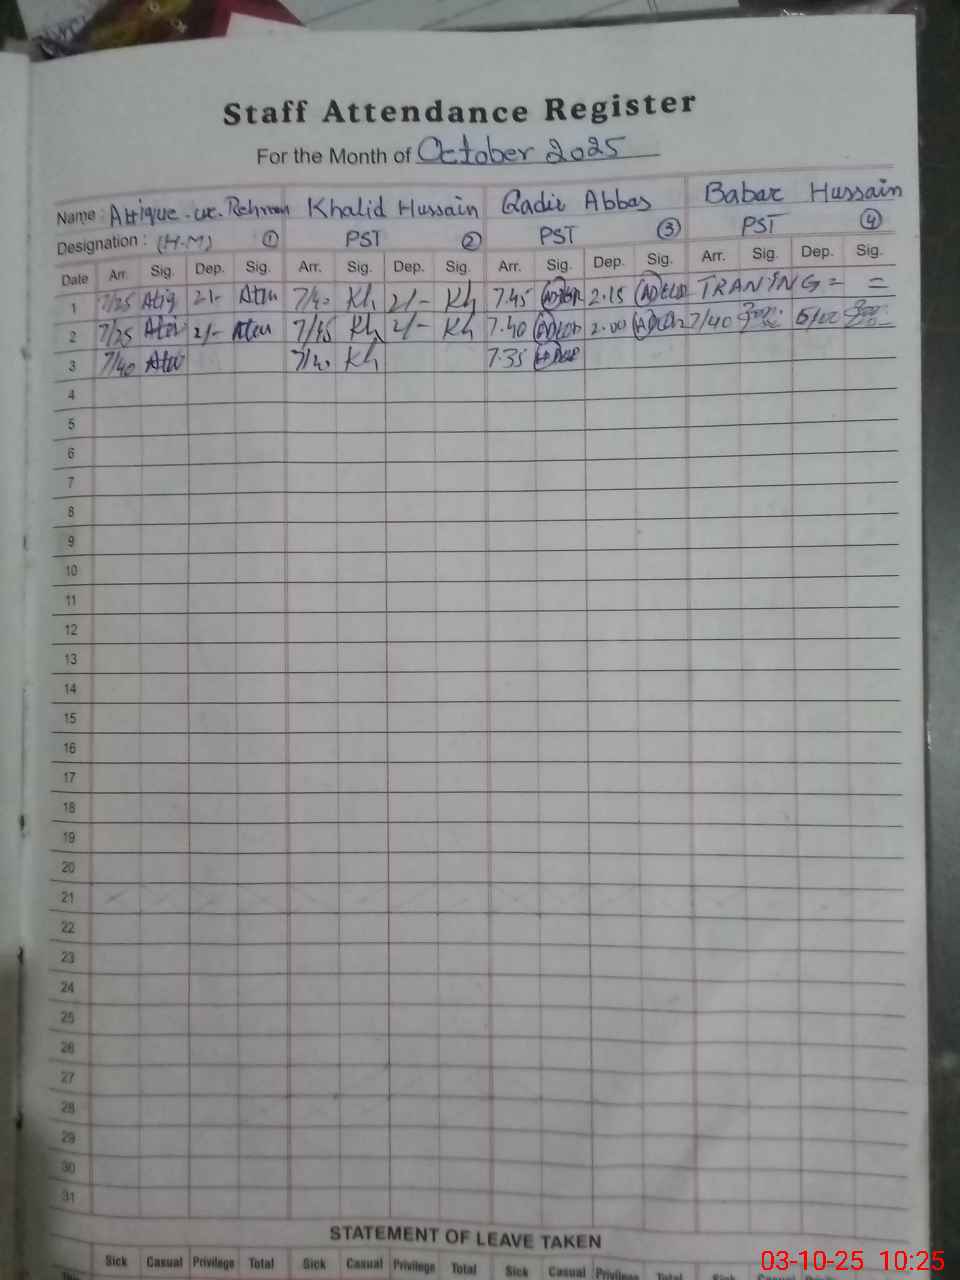 Staff Attendance Register
For the Month of October 2025
Name : Attique-ur-Rehman Khalid Hussain Qadir Abbas Babar Hussain
Designation : (H-M) ① PST ② PST ③ PST ④
Date Arr. Sig. Dep. Sig. Arr. Sig. Dep. Sig. Arr. Sig. Dep. Sig. Arr. Sig. Dep. Sig.
1 7/25 Atiq 2/- 7/40 Kh 2/- Kh 7.45 2.15 TRANING = =
2 7/25 2/- 7/45 Kh 2/- Kh 7.40 2.00 7/40
3 7/40 7/40 Kh 7.35
4
5
6
7
8
9
10
11
12
13
14
15
16
17
18
19
20
21
22
23
24
25
26
27
28
29
30
31
STATEMENT OF LEAVE TAKEN
Sick Casual Privilege Total Sick Casual Privilege Total Sick Casual Privilege Total
03-10-25 10:25